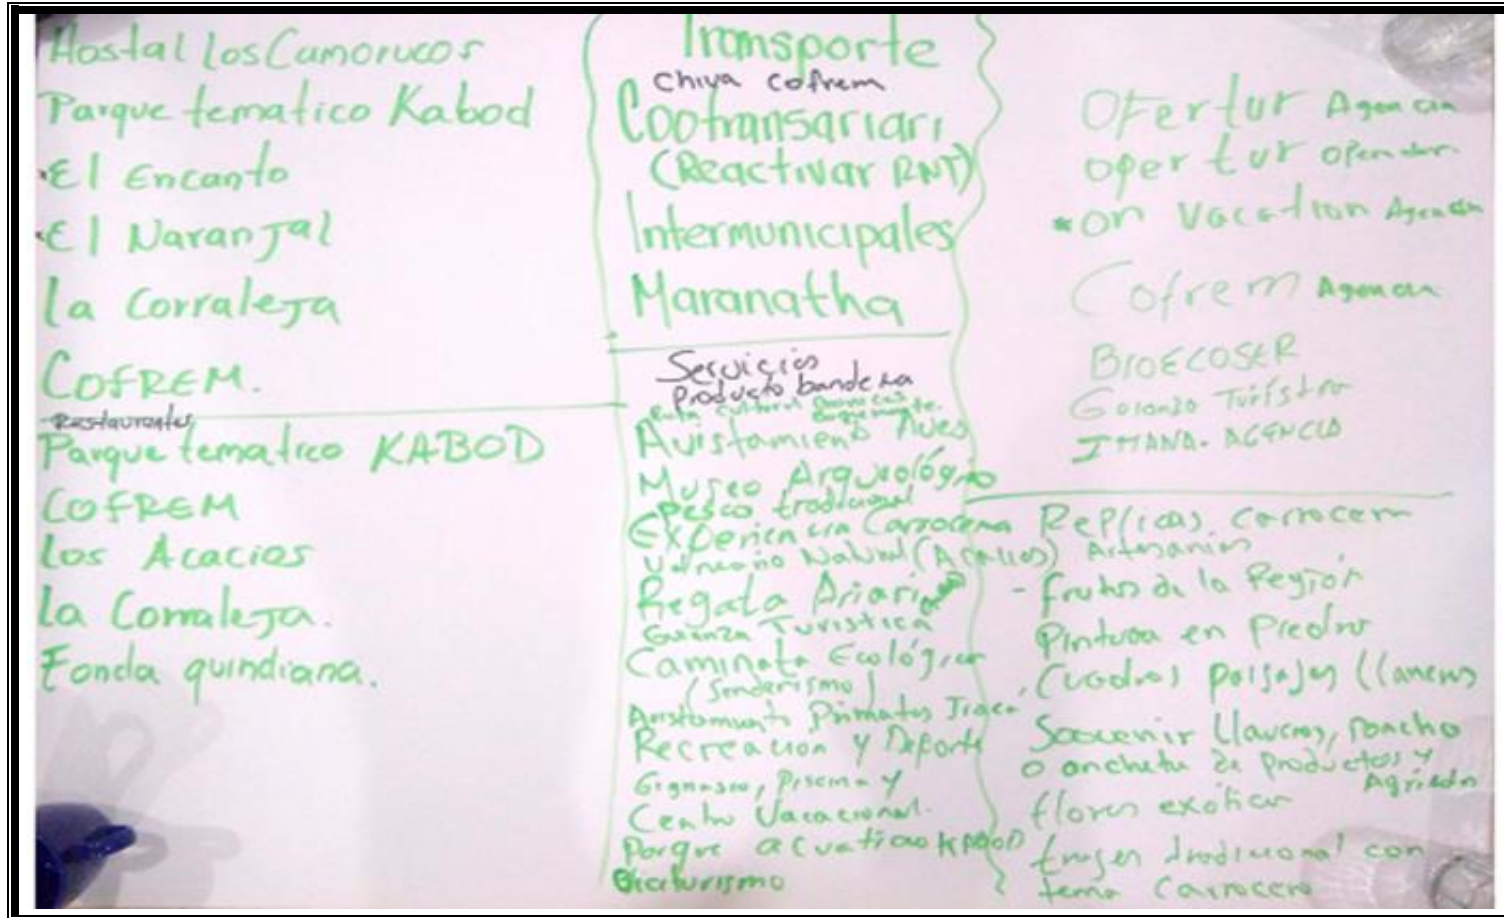 Hostal los Camorucos
Parque tematico Kabod
El Encanto
El Naranjal
la Corraleja
COFREM.
Restaurantes
Parque tematico KABOD
COFREM
los Acacios
la Corraleja.
Fonda quindiana.
Transporte
Chiva Cofrem
Cootransariari
(Reactivar RNT)
Intermunicipales
Maranatha
Servicios
Producto bandera
Ruta Cultural
Avistamiento Aves
Museo Arqueológico
Pesca tradicional
Experiencia Carrocera
Natural (Acacios)
Regata Ariari
Granza Turistica
Caminata Ecológica
(Senderismo)
Avistamiento Primates
Recreacion y Deporte
Gignasio, Piscina y
Centro Vacacional.
Parque acuatico KABOD
Bicicturismo
Ofertur Agencia
opertur operador
*on Vacation Agencia
Cofrem Agencia
BIOECOSER
Turístro
IMANA. AGENCIA
Replicas carrocera
Artesanias
- frutos de la Región
Pintura en Piedra
Cuadros paisajes llaneros
Souvenir llaveros, poncho
o ancheta de productos y
flores exoticas
trajes tradicional con
tema Carrocero